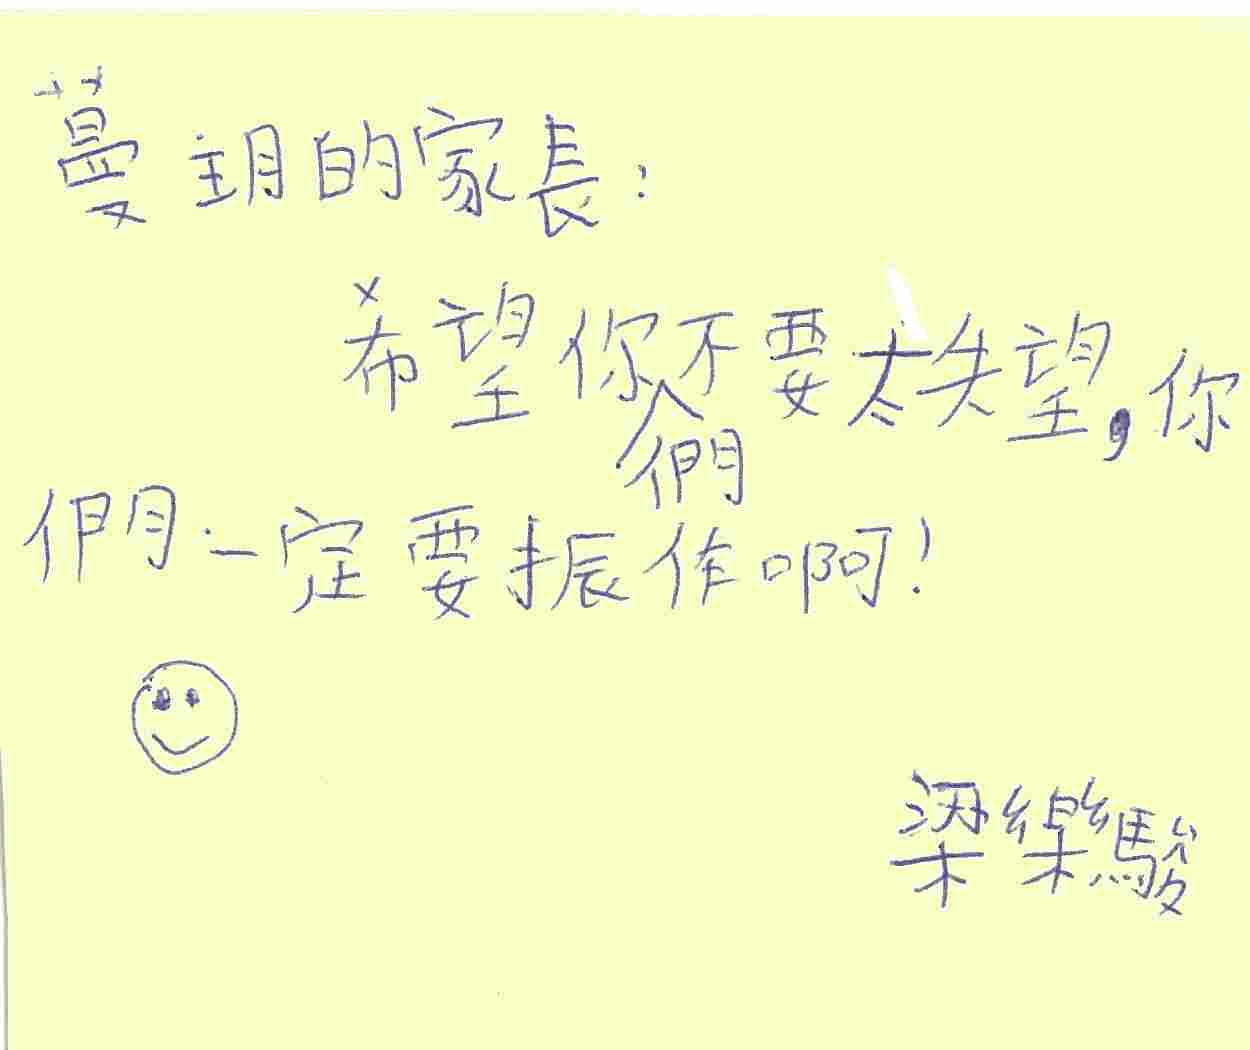 蔓玥的家長：
希望你們不要太失望，你
們一定要振作啊！
梁樂駿